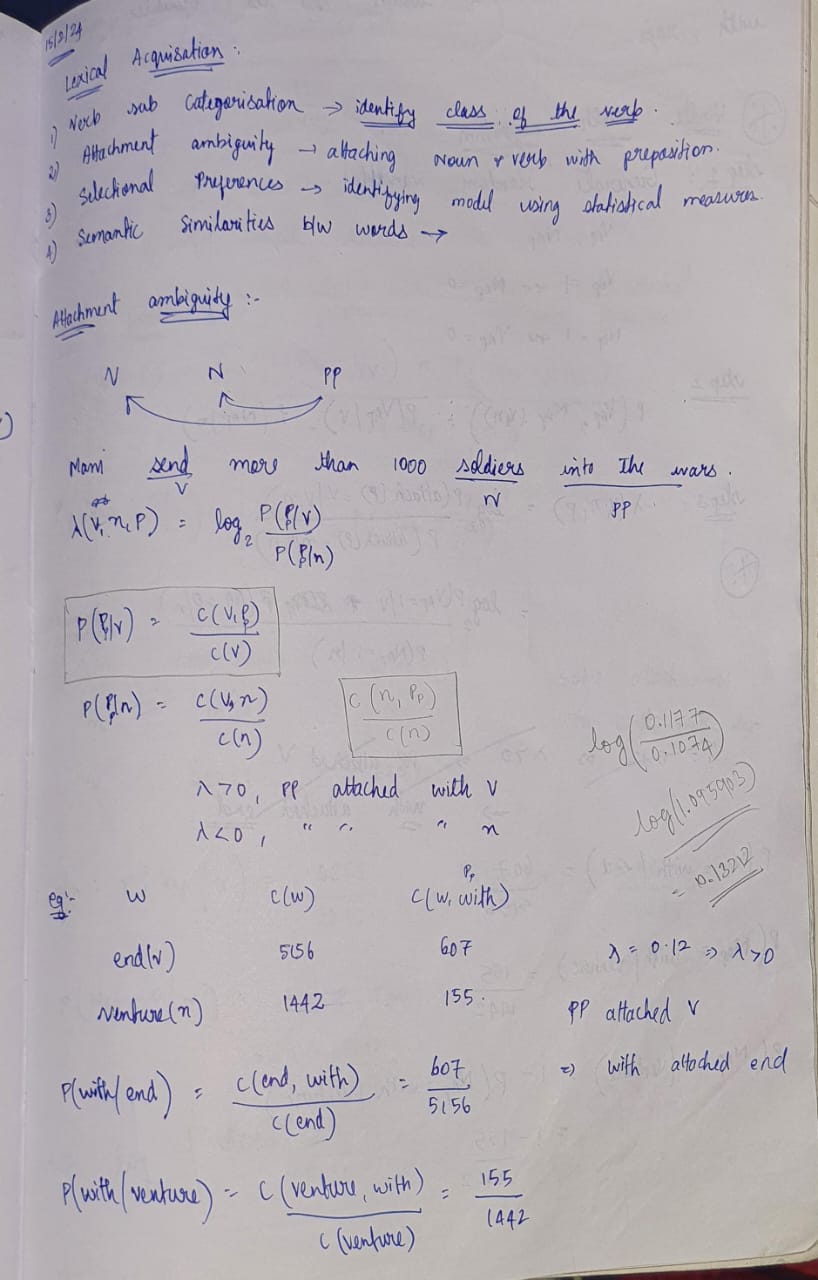 15/2/24
Lexical Acquisation :
1) Verb sub Categorisation → identify class of the verb.
2) Attachment ambiguity → attaching Noun & verb with preposition.
3) Selectional Preferences → identifying model using statistical measures.
4) Semantic Similarities b/w words →
Attachment ambiguity :-
N N PP
Mani send more than 1000 soldiers into The wars.
V N PP
λ(v, n, P) = log₂ P(P/v) / P(P/n)
P(P/v) = C(v, P) / C(v)
P(P/n) = C(v, n) / C(n) C(n, Pp) / C(n)
log(0.1177 / 0.1074)
log(1.095903)
= 0.13212
λ>0, PP attached with V
λ<0, " " " n
eg:- w C(w) C(w, with)
Pp
end(v) 5156 607
λ = 0.12 ⇒ λ>0
venture(n) 1442 155.
PP attached V
P(with/end) = C(end, with) / C(end) = 607 / 5156
⇒ with attached end
P(with/venture) = C(venture, with) / C(venture) = 155 / 1442